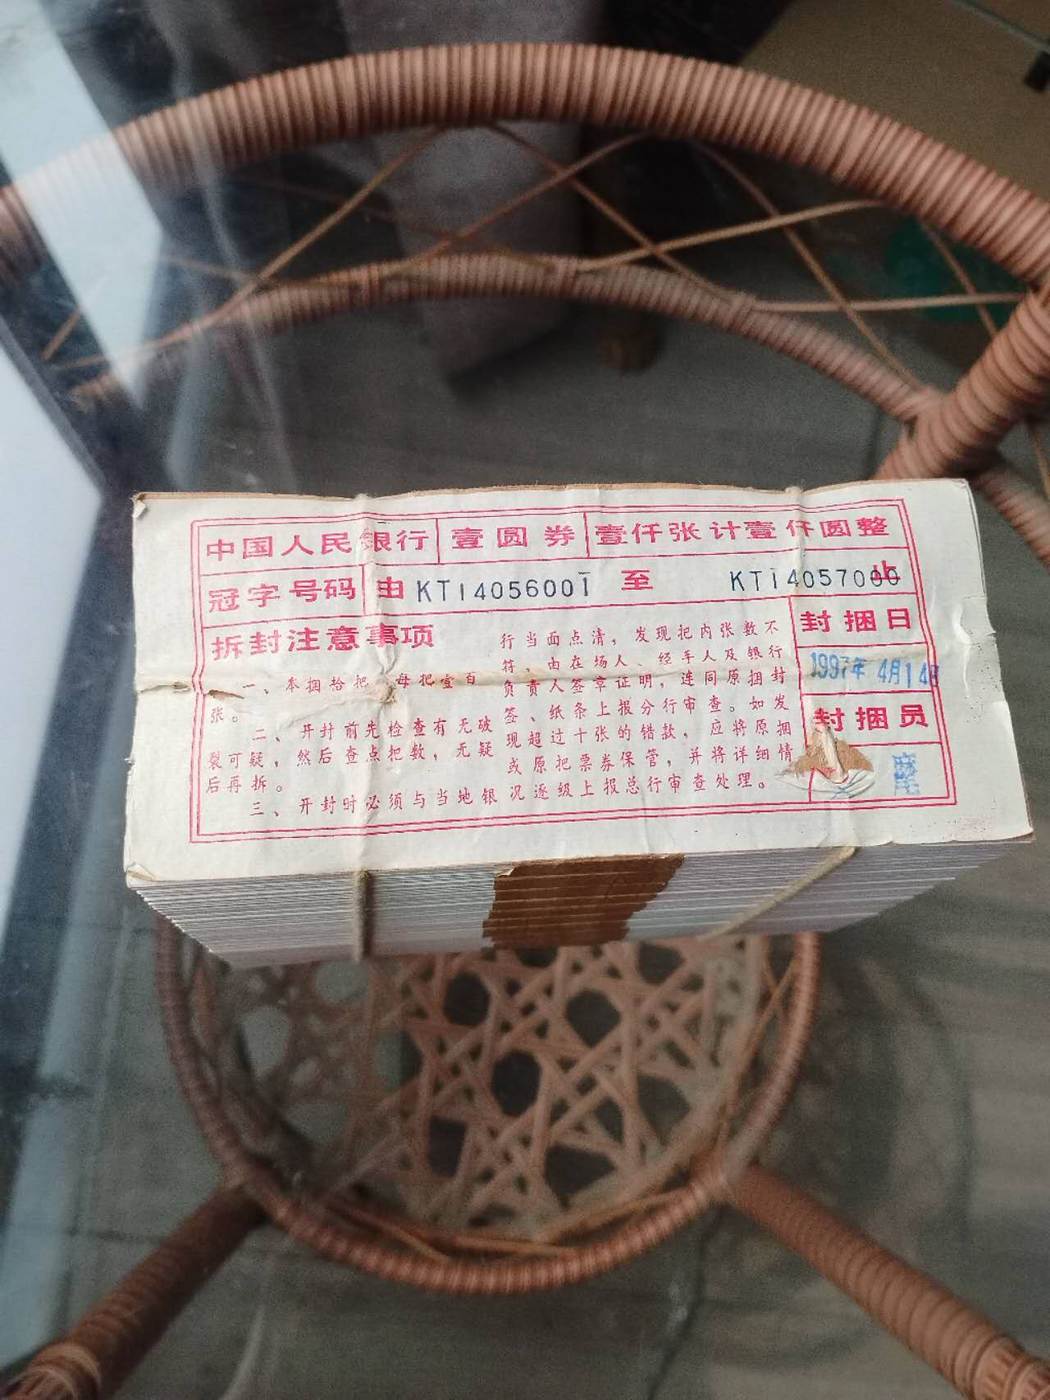 中国人民银行 壹圆券 壹仟张计壹仟圆整
冠字号码 由 KT14056001 至 KT14057000 止
拆封注意事项
一、本捆拾把，每把壹百
张。
二、开封前先检查有无破
裂可疑，然后查点把数，无疑
后再拆。
三、开封时必须与当地银
行当面点清，发现把内张数不
符，由在场人、经手人及银行
负责人签章证明，连同原捆封
签、纸条上报分行审查。如发
现超过十张的错款，应将原捆
或原把票券保管，并将详细情
况逐级上报总行审查处理。
封捆日
1997年 4月14日
封捆员